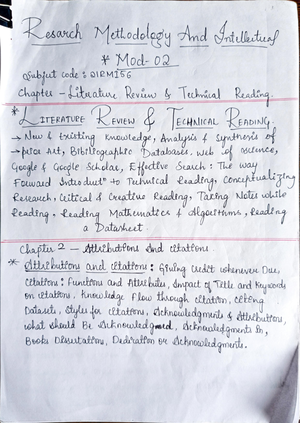 Resarch Methodology And Intellectual
* Mod-02
Subject Code: 21RMI56
Chapter - Literature Review & Technical Reading.
* LITERATURE REVIEW & TECHNICAL READING.
→ New & Existing Knowledge, Analysis & Synthesis of
→ prior Art, Bibliographic Databases, web of science,
Google & Google Scholar, Effective Search: The way
Forward Introductn to Technical Reading, Conceptualizing
Research, Critical & Creative Reading, Taking Notes while
Reading, Reading Mathematics & Algorithms, Reading
a Datasheet.
Chapter 2 - Attributions And citations.
* Attributions and citations: Giving Credit whenever Due,
Citations: Functions and Attributes, Impact of Title and Keywords
on citations, Knowledge Flow through citation, Citing
Datasets, Styles for citations, Acknowledgments & Attributions,
what should Be Acknowledged, Acknowledgments In,
Books Dissertations, Dedication or Acknowledgments.